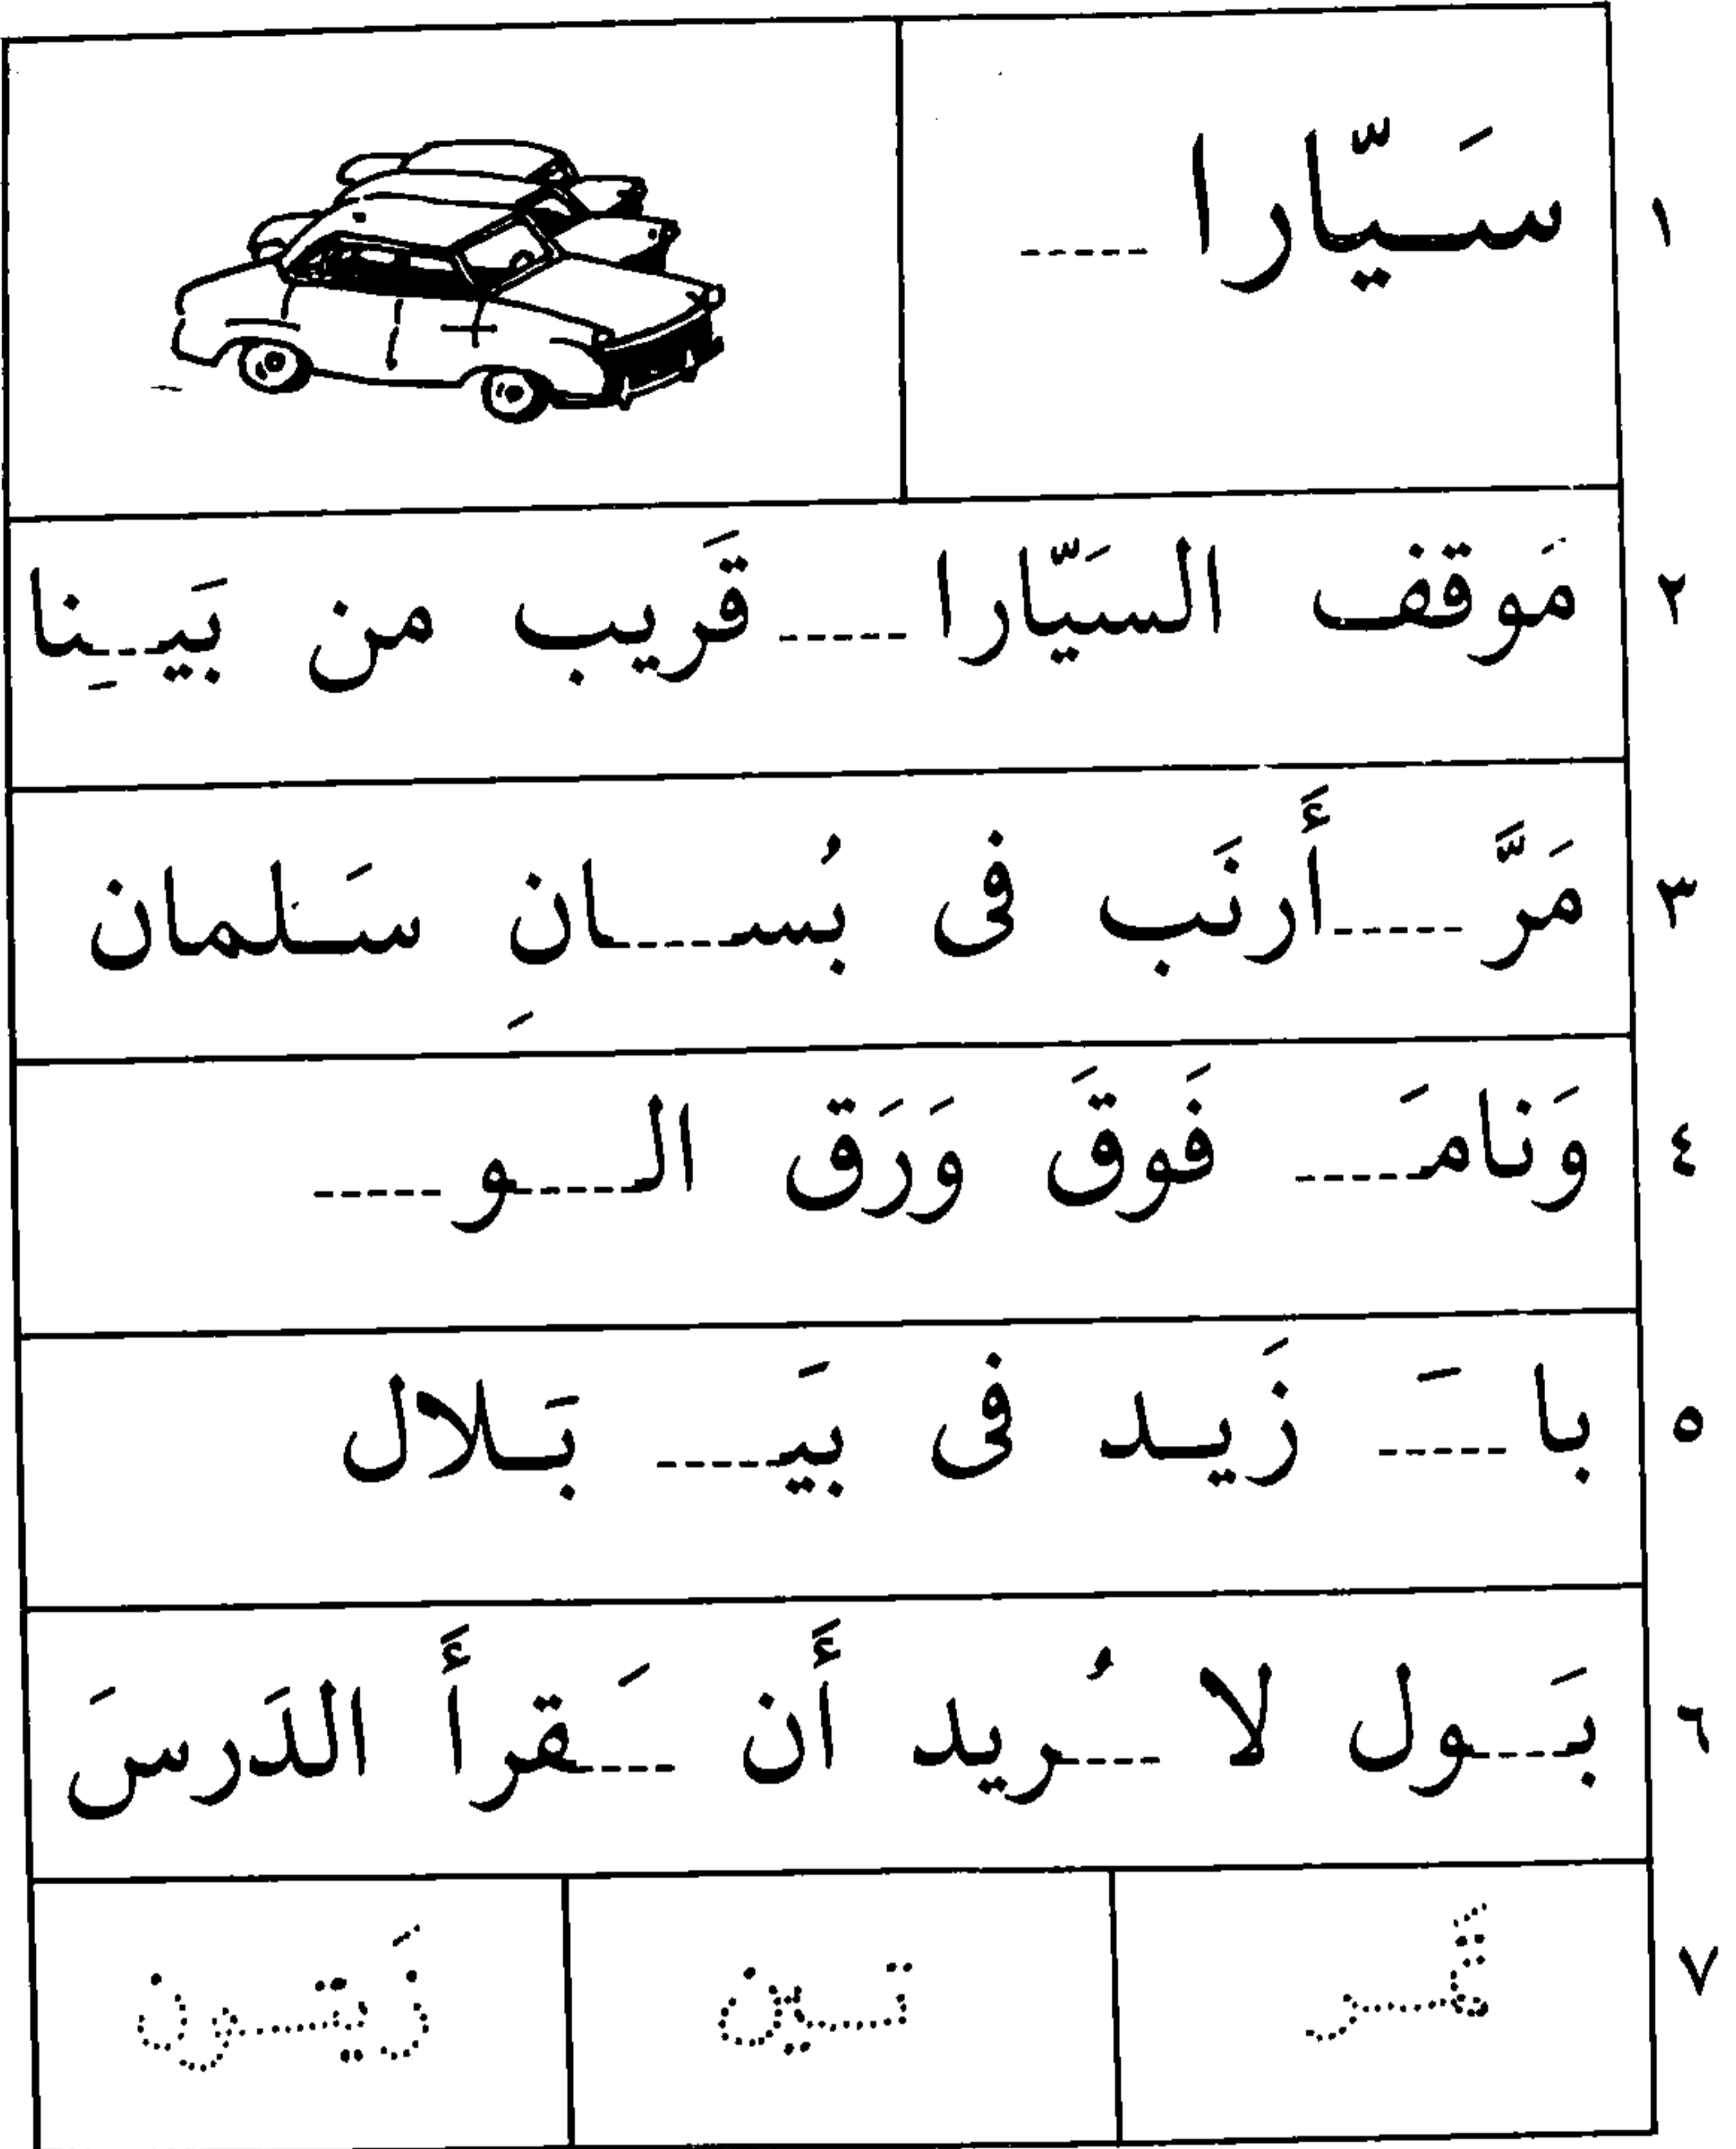 ١ سَـيّارا ----
٢ مَوقف السَيّارا ---- قَريب من بَيـ--ـنِا
٣ مَرَّ ---- أَرنَب فى بُسـ----ـانِ سَـلمان
٤ وَنامَـ---- فَوقَ وَرَق الـ----ـو ----
٥ با ---َ- زَيـد فى بَيـ---- بَـلال
٦ بَـ---ـول لا ---ـُريد أَن ---ـَقرأَ الدَرسَ
٧ تَمـر تـين زَيتـون